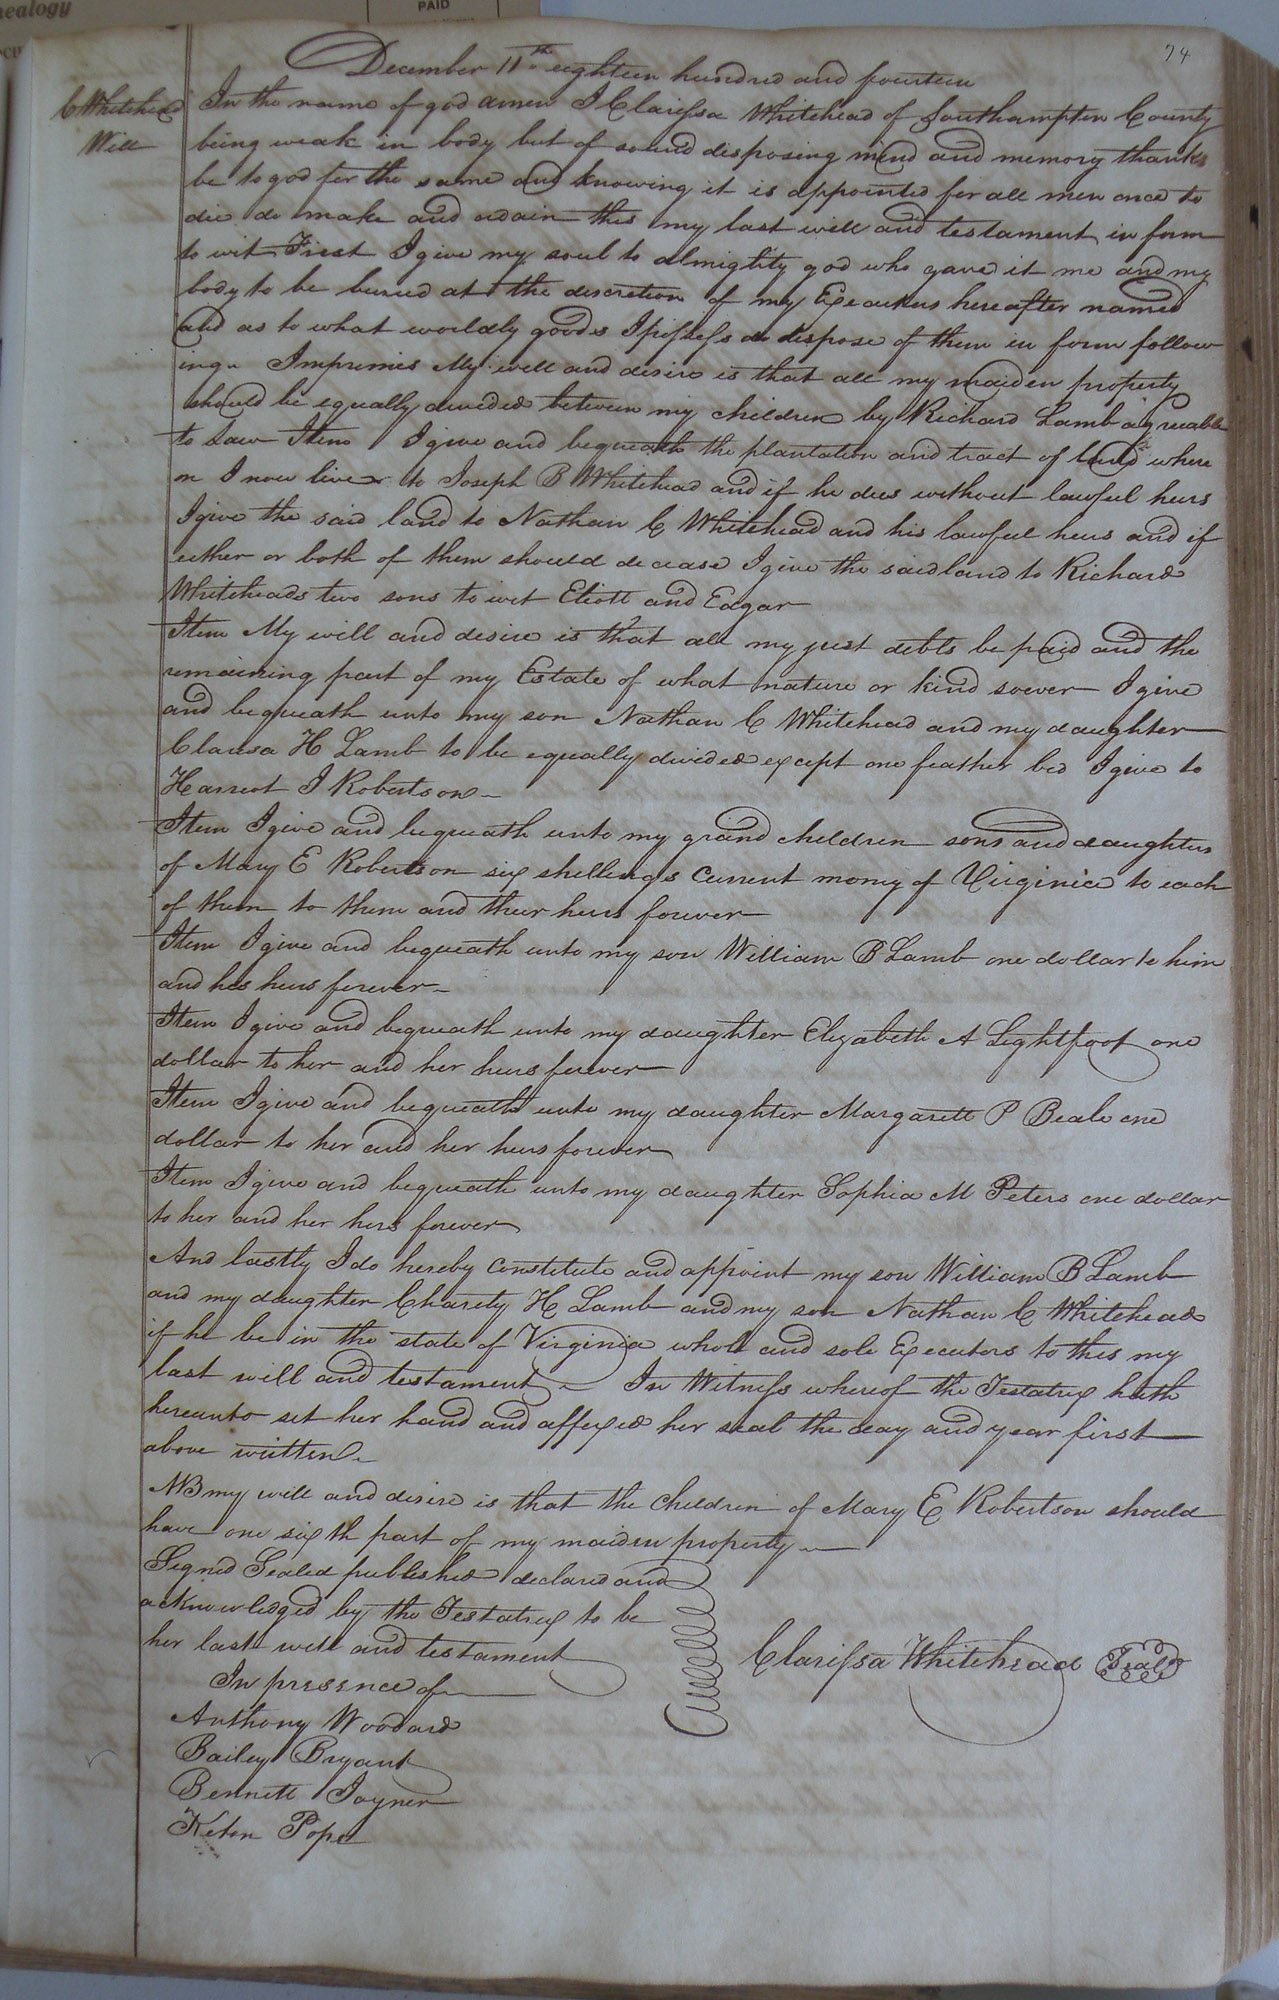 nealogy
PAID
74
December 11th eighteen hundred and fourteen
C Whitehead
Will
In the name of god amen I Clarissa Whitehead of Southampton County
being weak in body but of sound disposing mind and memory thanks
be to god for the same and knowing it is appointed for all men once to
die do make and ordain this my last will and testament in form
to wit First I give my soul to almighty god who gave it me and my
body to be buried at the discretion of my Executors hereafter named
and as to what worldly goods I possess do dispose of them in form follow
ing Imprimis My will and desire is that all my maiden property
should be equally divided between my children by Richard Lamb agreeable
to law Item I give and bequeath the plantation and tract of land where
on I now live to Joseph B Whitehead and if he dies without lawful heirs
I give the said land to Nathan C Whitehead and his lawful heirs and if
either or both of them should decease I give the said land to Richard
Whiteheads two sons to wit Eliott and Edgar
Item My will and desire is that all my just debts be paid and the
remaining part of my Estate of what nature or kind soever I give
and bequeath unto my son Nathan C Whitehead and my daughter
Clarisa H Lamb to be equally divided except one feather bed I give to
Harriot J Robertson
Item I give and bequeath unto my grand children sons and daughters
of Mary E Robertson six shillings current money of Virginia to each
of them to them and their heirs forever
Item I give and bequeath unto my son William B Lamb one dollar to him
and his heirs forever
Item I give and bequeath unto my daughter Elizabeth A Lightfoot one
dollar to her and her heirs forever
Item I give and bequeath unto my daughter Margarett P Beale one
dollar to her and her heirs forever
Item I give and bequeath unto my daughter Sophia M Peters one dollar
to her and her heirs forever
And lastly I do hereby constitute and appoint my son William B Lamb
and my daughter Charity H Lamb and my son Nathan C Whitehead
if he be in the state of Virginia whole and sole Executors to this my
last will and testament In Witness whereof the Testatrix hath
hereunto set her hand and affixed her seal the day and year first
above written
NB my will and desire is that the children of Mary E Robertson should
have one sixth part of my maiden property
Signed Sealed published declared and
acknowledged by the Testatrix to be
her last will and testament
In presence of
Clarissa Whitehead Seal
Anthony Woodard
Bailey Bryant
Bennett Joyner
Pope